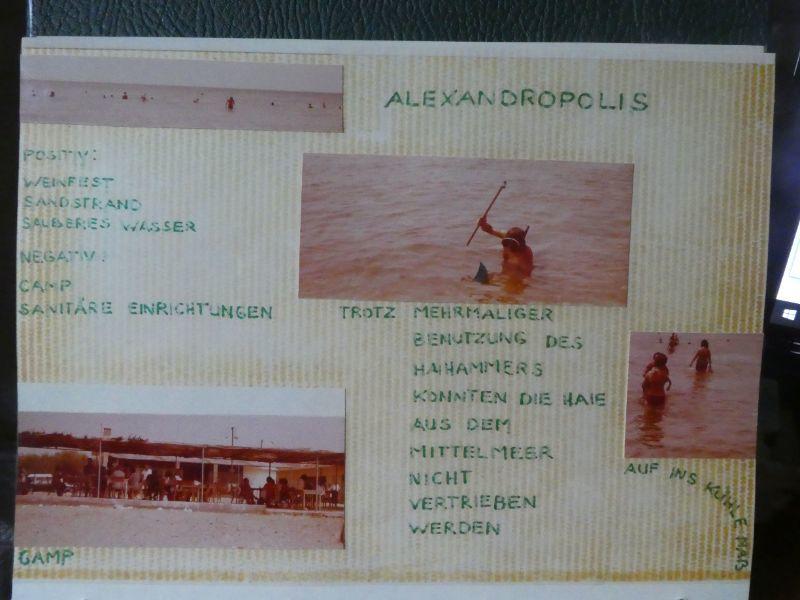 ALEXANDROPOLIS
POSITIV:
WEINFEST
SANDSTRAND
SAUBERES WASSER
NEGATIV:
CAMP
SANITÄRE EINRICHTUNGEN
TROTZ MEHRMALIGER
BENUTZUNG DES
HAIHAMMERS
KONNTEN DIE HAIE
AUS DEM
MITTELMEER
NICHT
VERTRIEBEN
WERDEN
AUF INS KÜHLE NAß
CAMP